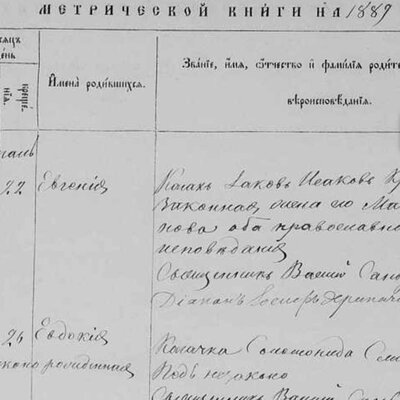 МЕТРИЧЕСКОЙ КНИГИ НА 1889
сяцъ
день
креще-
нія.
Имена родившихся.
Званіе, имя, отчество и фамилія родите
вѣроисповѣданія.
22 Евгенія
Козакъ Іаковъ Исаковъ
Законная жена его Ма
нова оба православно
исповѣданія
Священникъ Василій
Діаконъ Іосифъ
26 Евдокія
рожденная
Козачка Соломонида
незаконно
Священникъ Василій